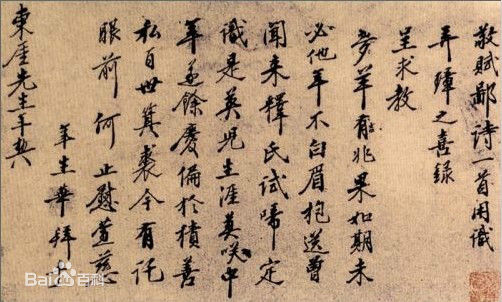 敬賦鄙詩一首用識
弄璋之喜録
呈求教
夢羊有兆果如期未
必他年不白眉抱送曾
聞来釋氏試啼定
識是英児生涯莫咲中
年遲餘慶偏於積善
私百世箕裘今有託
眼前何止慰萱慈
年生華拜
東厓先生年契
Bai百科